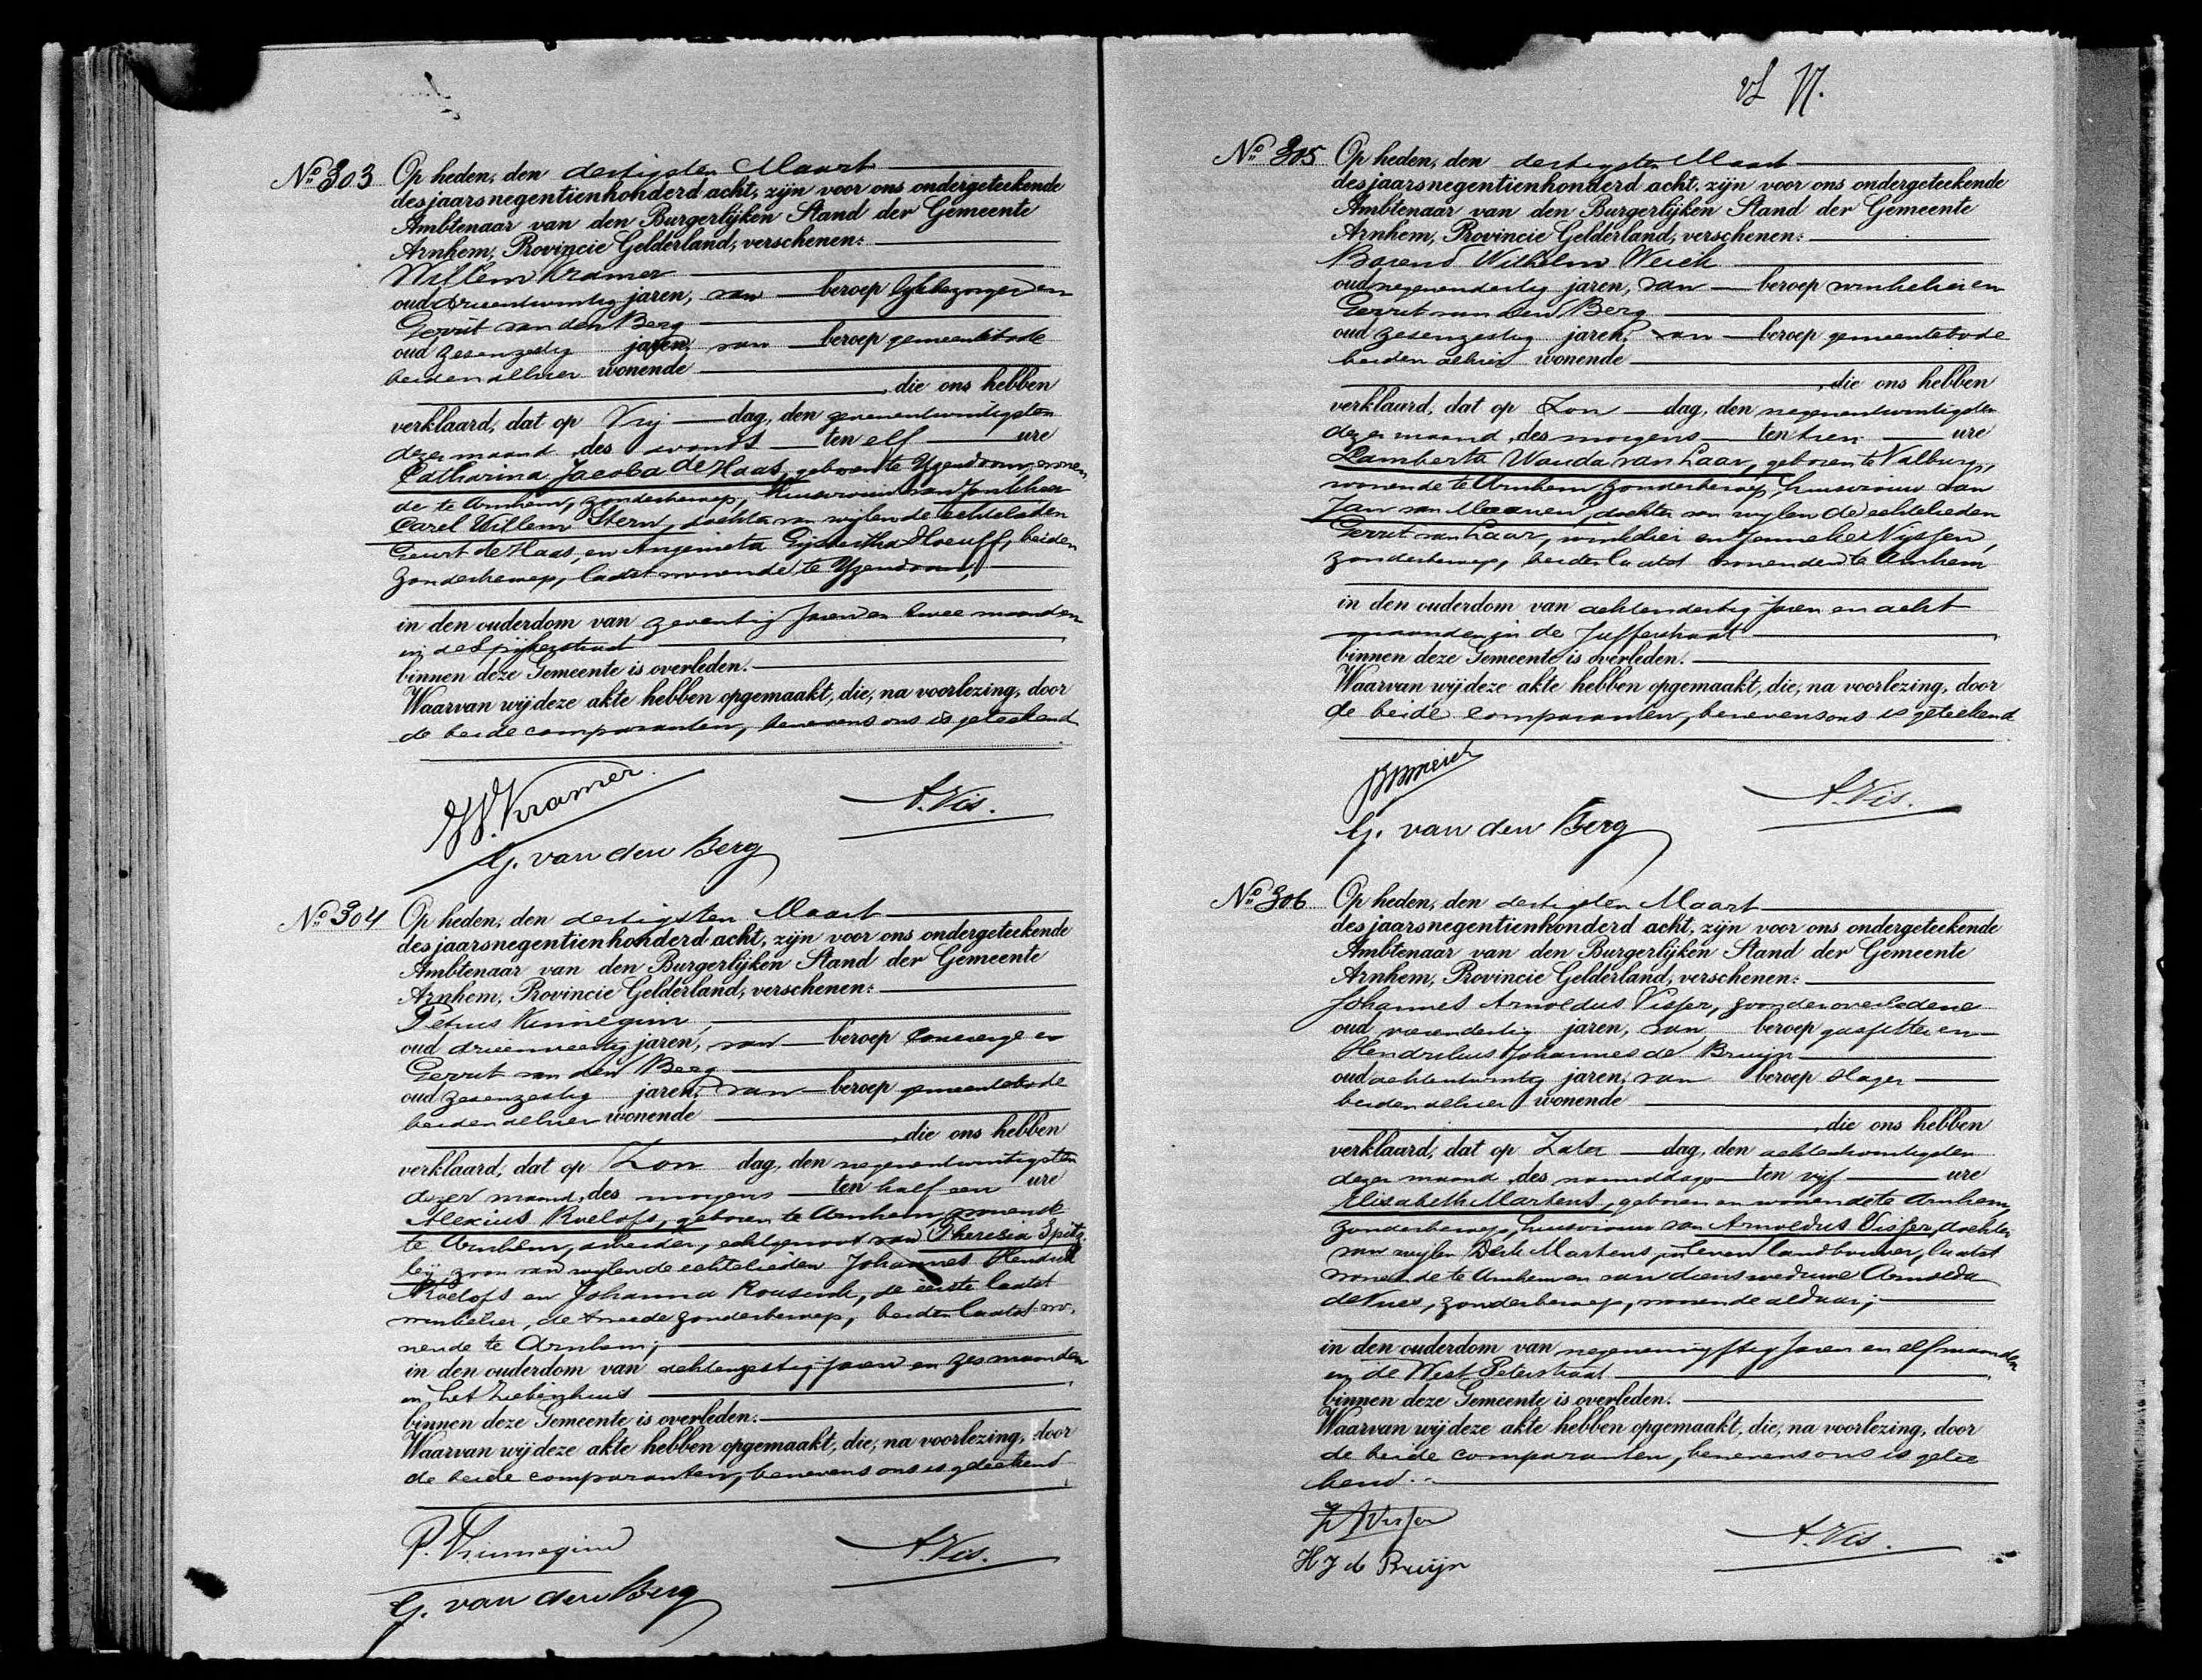 No 303 Op heden, den dertigsten Maart
des jaars negentienhonderd acht, zijn voor ons ondergeteekende
Ambtenaar van den Burgerlijken Stand der Gemeente
Arnhem, Provincie Gelderland, verschenen:
Willem Kramer
oud drieentwintig jaren, van beroep lijkbezorger en
Gerrit van den Berg
oud zesenzestig jaren, van beroep gemeentebode
beiden alhier wonende
, die ons hebben
verklaard, dat op Vrij dag, den zevenentwintigsten
dezer maand, des avonds ten elf ure
Catharina Jacoba de Haas, geboren te Yzendoorn, wonen
de te Arnhem, zonder beroep, huisvrouw van Jonkheer
Carel Willem Stern, dochter van wijlen de echtelieden
Geurt de Haas, en Angenieta Gijsbertha Hoeuff, beiden
zonder beroep, laatst wonende te Yzendoorn,
in den ouderdom van zeventig jaren en twee maanden
in de Spijkerstraat
binnen deze Gemeente is overleden.
Waarvan wij deze akte hebben opgemaakt, die, na voorlezing, door
de beide comparanten, benevens ons is geteekend
W. Kramer.
A. Vis.
G. van den Berg
No 304 Op heden, den dertigsten Maart
des jaars negentienhonderd acht, zijn voor ons ondergeteekende
Ambtenaar van den Burgerlijken Stand der Gemeente
Arnhem, Provincie Gelderland, verschenen:
Petrus
oud drieenveertig jaren, van beroep concierge en
Gerrit van den Berg
oud zesenzestig jaren, van beroep gemeentebode
beiden alhier wonende
, die ons hebben
verklaard, dat op Zon dag, den negenentwintigsten
dezer maand, des morgens ten half een ure
Alexius Roelofs, geboren te Arnhem, wonende
te Arnhem, arbeider, echtgenoot van Theresia Spitz
leij zoon van wijlen de echtelieden Johannes Hendrik
Roelofs en Johanna de eerste laatst
winkelier, de tweede zonder beroep, beiden laatst wo
nende te Arnhem;
in den ouderdom van achtenzestig jaren en zes maanden
in het Ziekenhuis
binnen deze Gemeente is overleden.
Waarvan wij deze akte hebben opgemaakt, die, na voorlezing, door
de beide comparanten, benevens ons is geteekend
P.
A. Vis.
G. van den Berg
No 305 Op heden, den dertigsten Maart
des jaars negentienhonderd acht, zijn voor ons ondergeteekende
Ambtenaar van den Burgerlijken Stand der Gemeente
Arnhem, Provincie Gelderland, verschenen:
Barend Wilhelm Weich
oud negenendertig jaren, van beroep winkelier en
Gerrit van den Berg
oud zesenzestig jaren, van beroep gemeentebode
beiden alhier wonende
, die ons hebben
verklaard, dat op Zon dag, den negenentwintigsten
dezer maand, des morgens ten tien ure
Lamberta Wanda van Laar, geboren te Valburg,
wonende te Arnhem, zonder beroep, huisvrouw van
Jan van Maanen, dochter van wijlen de echtelieden
Gerrit van Laar, winkelier en Janneke Nijssen,
zonder beroep, beiden laatst wonende te Arnhem
in den ouderdom van achtendertig jaren en acht
maanden in de Jufferstraat
binnen deze Gemeente is overleden.
Waarvan wij deze akte hebben opgemaakt, die, na voorlezing, door
de beide comparanten, benevens ons is geteekend
BWWeich
A. Vis.
G. van den Berg
No 306 Op heden, den dertigsten Maart
des jaars negentienhonderd acht, zijn voor ons ondergeteekende
Ambtenaar van den Burgerlijken Stand der Gemeente
Arnhem, Provincie Gelderland, verschenen:
Johannes Arnoldus Visser, zoon der overledene
oud vierendertig jaren, van beroep gasfitter en
Hendrikus Johannes de Bruijn
oud achtentwintig jaren, van beroep slager
beiden alhier wonende
, die ons hebben
verklaard, dat op Zater dag, den achtentwintigsten
dezer maand, des namiddags ten vijf ure
Elisabeth Martens, geboren en wonende te Arnhem,
zonder beroep, huisvrouw van Arnoldus Visser, dochter
van wijlen Derk Martens, in leven landbouwer, laatst
wonende te Arnhem en van diens weduwe Arnolda
de Vries, zonder beroep, wonende aldaar;
in den ouderdom van negenenvijftig jaren en elf maanden
in de West Peterstraat
binnen deze Gemeente is overleden.
Waarvan wij deze akte hebben opgemaakt, die, na voorlezing, door
de beide comparanten, benevens ons is getee
kend.
JAVisser
A. Vis.
HJ de Bruijn